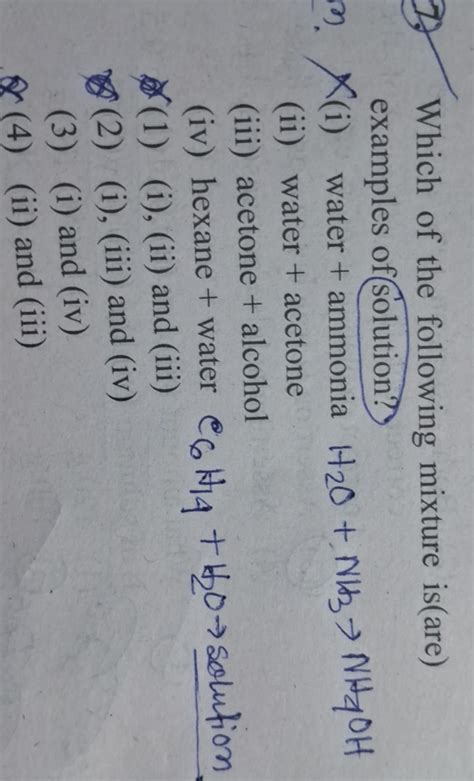 7. Which of the following mixture is(are)
examples of solution?
(i) water + ammonia H2O + NH3 → NH4OH
(ii) water + acetone
(iii) acetone + alcohol
(iv) hexane + water C6H14 + H2O → solution
(1) (i), (ii) and (iii)
(2) (i), (iii) and (iv)
(3) (i) and (iv)
(4) (ii) and (iii)